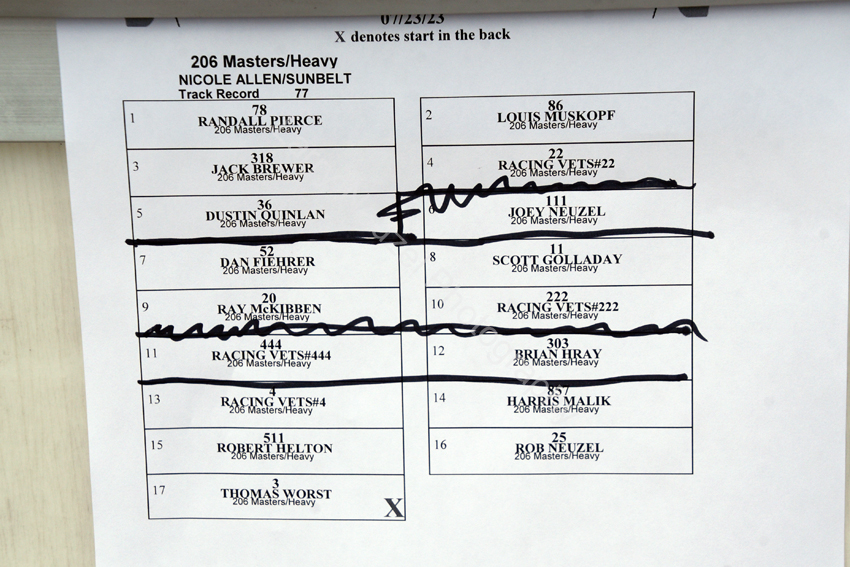 07/23/23
X denotes start in the back
206 Masters/Heavy
NICOLE ALLEN/SUNBELT
Track Record 77
1
78
RANDALL PIERCE
206 Masters/Heavy
2
86
LOUIS MUSKOPF
206 Masters/Heavy
3
318
JACK BREWER
206 Masters/Heavy
4
22
RACING VETS#22
206 Masters/Heavy
5
36
DUSTIN QUINLAN
206 Masters/Heavy
6
111
JOEY NEUZEL
206 Masters/Heavy
7
52
DAN FIEHRER
206 Masters/Heavy
8
11
SCOTT GOLLADAY
206 Masters/Heavy
9
20
RAY McKIBBEN
206 Masters/Heavy
10
222
RACING VETS#222
206 Masters/Heavy
11
444
RACING VETS#444
206 Masters/Heavy
12
303
BRIAN HRAY
206 Masters/Heavy
13
4
RACING VETS#4
206 Masters/Heavy
14
857
HARRIS MALIK
206 Masters/Heavy
15
511
ROBERT HELTON
206 Masters/Heavy
16
25
ROB NEUZEL
206 Masters/Heavy
17
3
THOMAS WORST
206 Masters/Heavy
X